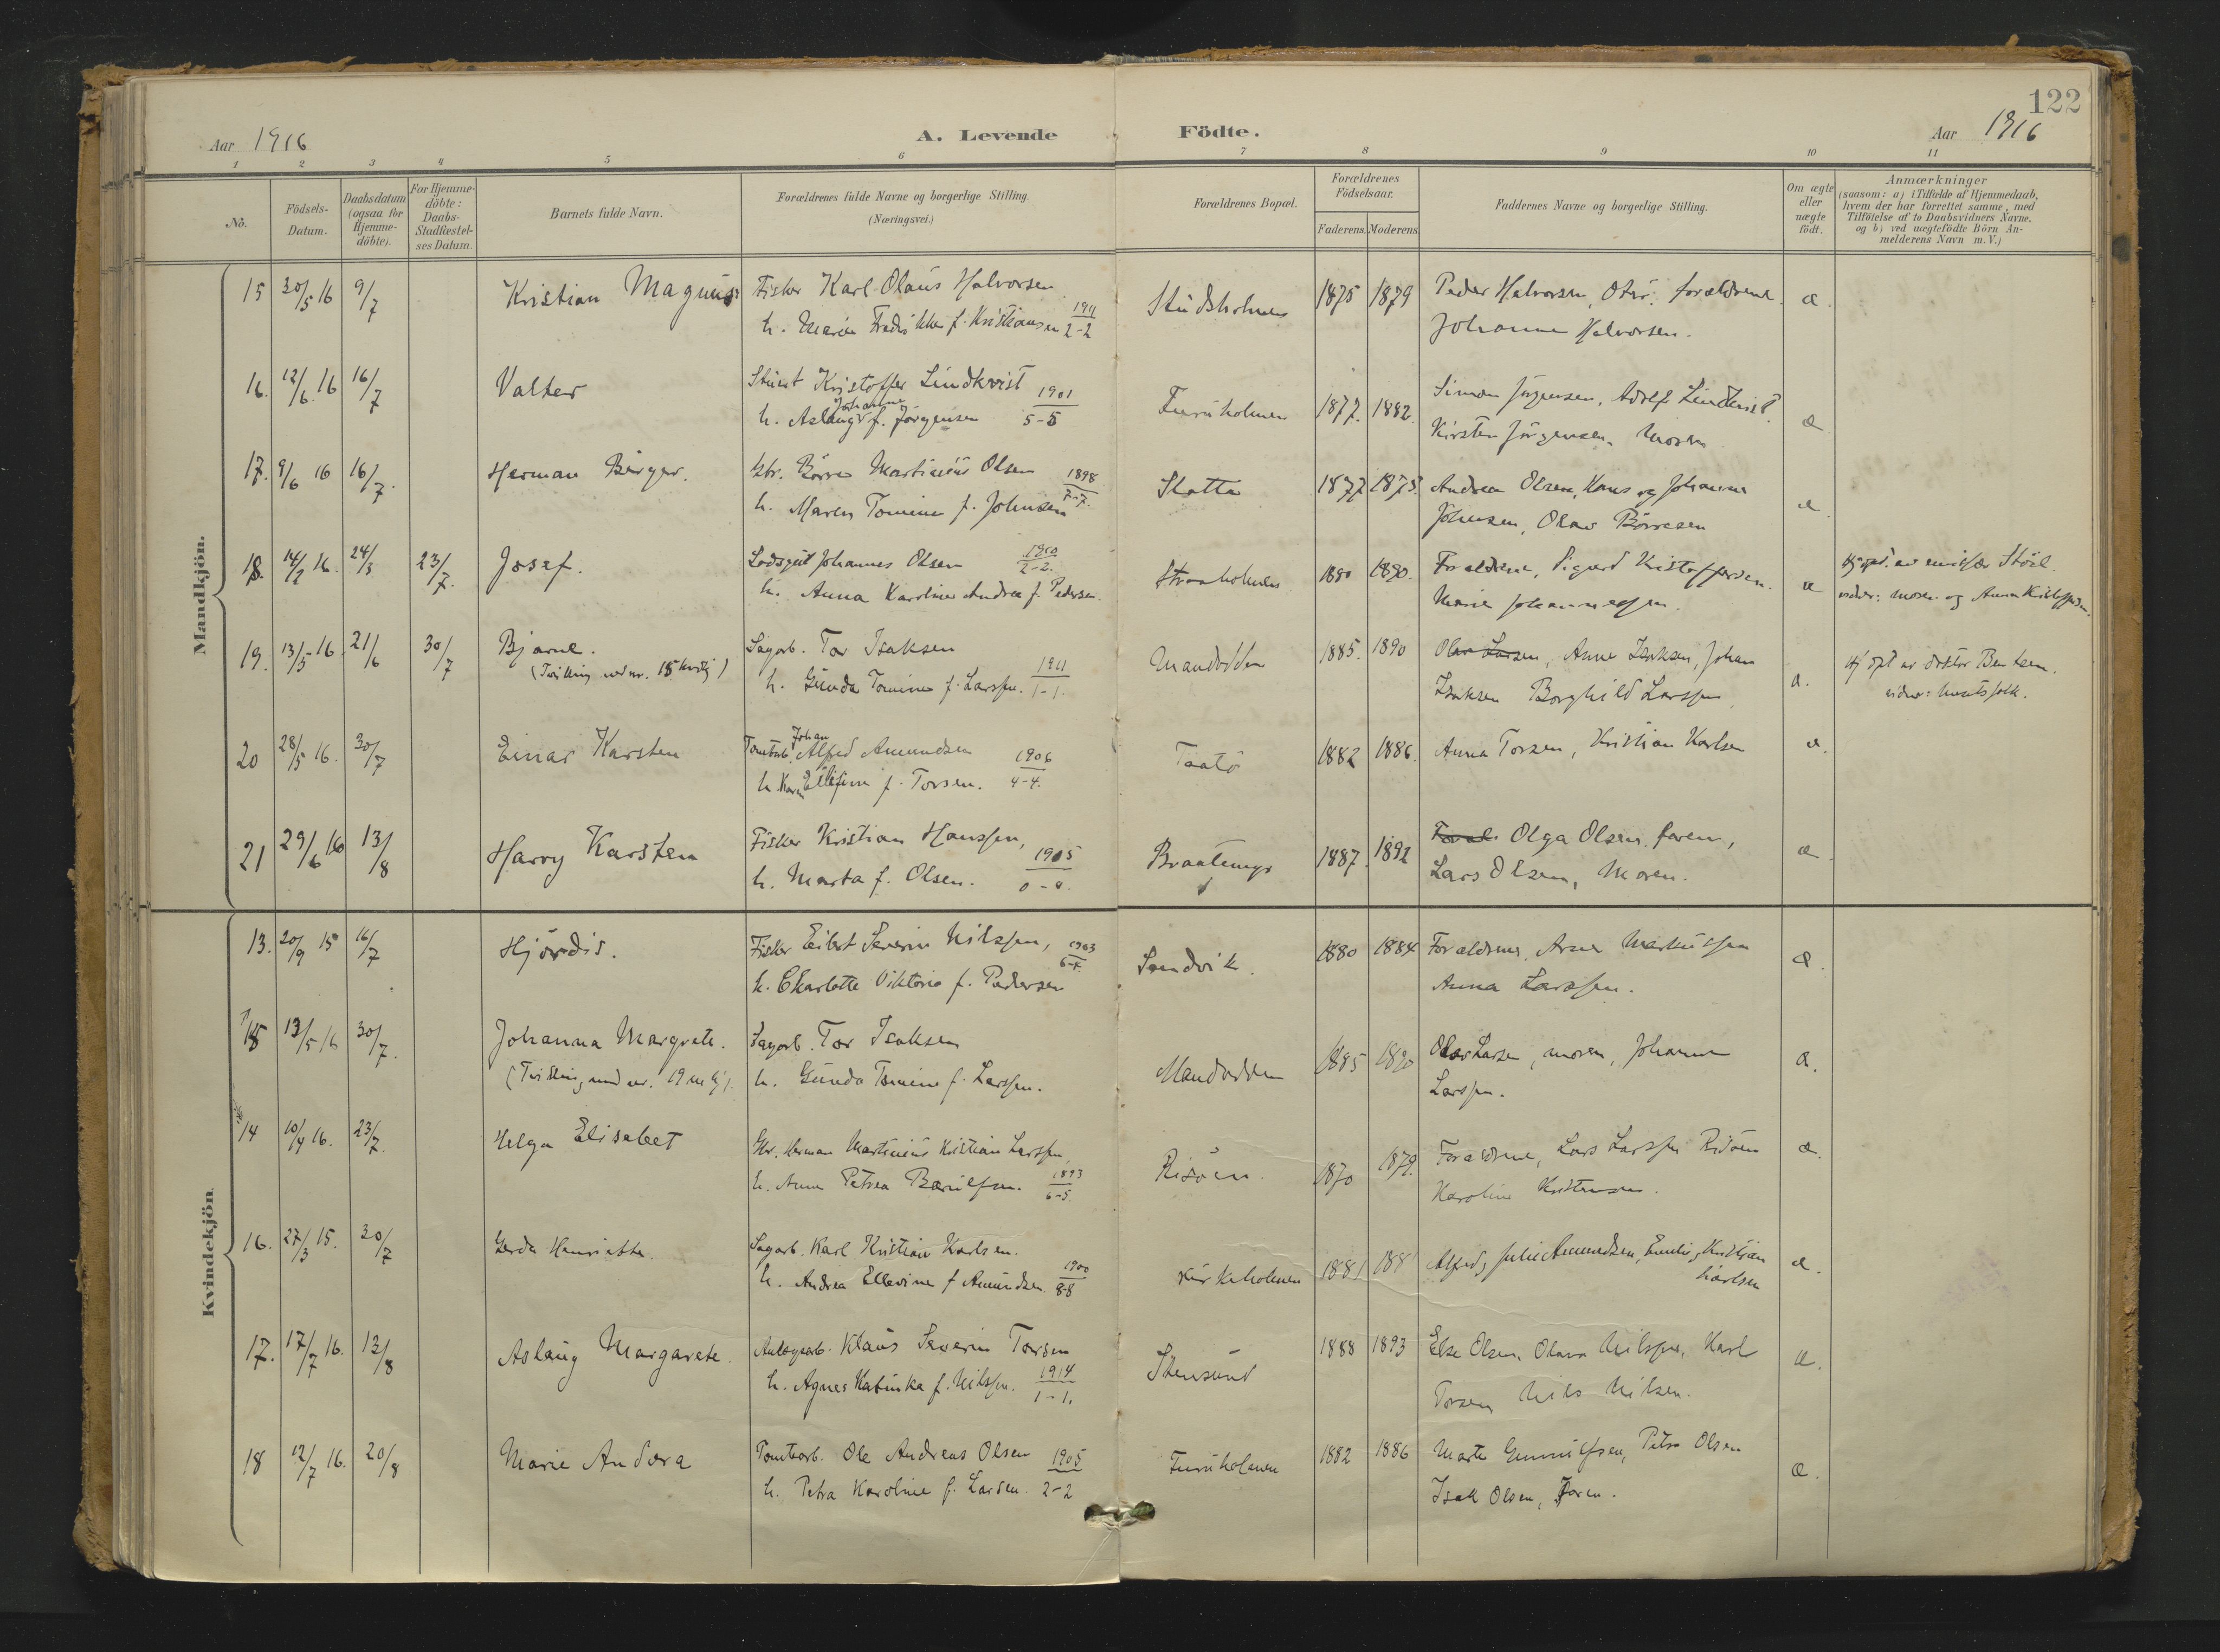 122
Aar 1916
A. Levende
Födte.
Aar 1916
1 2 3 4 5 6 7 8 9 10 11
No.
Födsels-
Datum.
Daabsdatum
(ogsaa for
Hjemme-
döbte).
For Hjemme-
döbte:
Daabs-
Stadfæstel-
ses Datum.
Barnets fulde Navn.
Forældrenes fulde Navne og borgerlige Stilling.
(Næringsvei.)
Forældrenes Bopæl.
Forældrenes
Födselsaar.
Faderens. Moderens
Faddernes Navne og borgerlige Stilling.
Om ægte
eller
uægte
födt.
Anmærkninger
(saasom: a) i Tilfælde af Hjemmedaab,
hvem der har forrettet samme, med
Tilföielse af to Daabsvidners Navne.
og b) ved uægtefödte Börn An-
melderens Navn m. V.)
Mandkjön.
15 30/5 16 9/7 Kristian Magnus Fisker Karl Olaus Halvorsen Studsholmen 1875 1879 Peder Halvorsen, forældrene æ
h. Marie f. Kristiansen 1911 2-2 Johanne Halvorsen.
16. 12/6 16 16/7 Valter Kristoffer Lindkvist 1901 Furuholmen 1877. 1882. Simon Jörgensen, Adolf Lindkvist æ
h. Aslaug Johanne f. Jörgensen 5-5 Kirsten Jörgensen, Moren
17. 9/6 16 16/7. Herman Birger. Gbr. Börre Martinius Olsen 1898 Slotta 1877 1875. Andrea Olsen, Hans og Johanne æ
h. Maren Tomine f. Johnsen 7-7. Johnsen, Olav Börresen
18. 14/2 16. 24/3 23/7. Josef. Lodsgut Johannes Olsen 1910 2-2. Straaholmen 1890 1890. Forældrene, Sigurd Kristoffersen. æ
h. Anna Karoline Andrea f. Pedersen. Marie Johannessen.
vidner: moren og Anna Kristoffersen.
19. 13/5 16 21/6 30/7 Bjarne. Sagarb. Tor Isaksen 1911 Mandodden 1885. 1890 Olav Larsen, Anne Isaksen, Johan æ.
(Tvilling med nr. 15 kvkj) h. Gunda Tomine f. Larssen. 1-1. Isaksen Borghild Larssen
20 28/5 16. 30/7 Einar Karsten Tomtearb. Johan Alfred Amundsen 1906 Taatö 1882 1886. Anna Torsen, Kristian Karlsen æ.
h. Karen Ellefine f. Torsen. 4-4.
21 29/6 16 13/8 Harry Karsten Fisker Kristian Hanssen, 1915 Braatemyr 1887. 1892 Olga Olsen, faren, æ
h. Marta f. Olsen. 0-0. Lars Olsen, Moren.
Kvindekjön
13. 20/9 15 16/7 Hjördis. Fisker Eilert Severin Nilssen, 1903 Sandvik. 1880 1884 Forældrene, Arne Markussen æ.
h. Charlotte Viktoria f. Pedersen Anna Larssen.
15 13/5 16 30/7. Johanna Margrete. Sagarb. Tor Isaksen Mandodden 1885 1890 Olav Larsen, moren, Johanne æ.
(Tvilling med nr. 19 m kj). h. Gunda Tomine f. Larssen. Larssen.
14 10/4 16. 23/7. Helga Elisabet Gbr. Herman Martinius Kristian Larssen, Risöen. 1870 1879. Forældrene, Lars Larssen Risöen æ.
h. Anne Petrea 1893 6-5. Karoline Kristensen.
16. 27/3 15. 30/7 Gerda Henriette. Sagarb. Karl Kristian Karlsen. Kirkeholmen 1881 188 Alfred, Julie Amundsen, Emilie, Kristian æ.
h. Andrea Ellevine f. Amundsen. 1900 8-8 Karlsen
17. 17/7 16. 13/8 Aslaug Margarete. Klaus Severin Torsen Stensund 1888 1893 Else Olsen, Olava Nilssen, Karl æ.
h. Agnes Katinka f. Nilssen. 1914 1-1. Torsen, Nils Nilsen.
18 12/7 16. 20/8 Marie Andora Tomtearb. Ole Andreas Olsen 1905 Furuholmen 1882 1886 Marte Gunnulfsen, Petra Olsen æ.
h. Petra Karoline f. Larsen. 2-2 Isak Olsen, Faren.